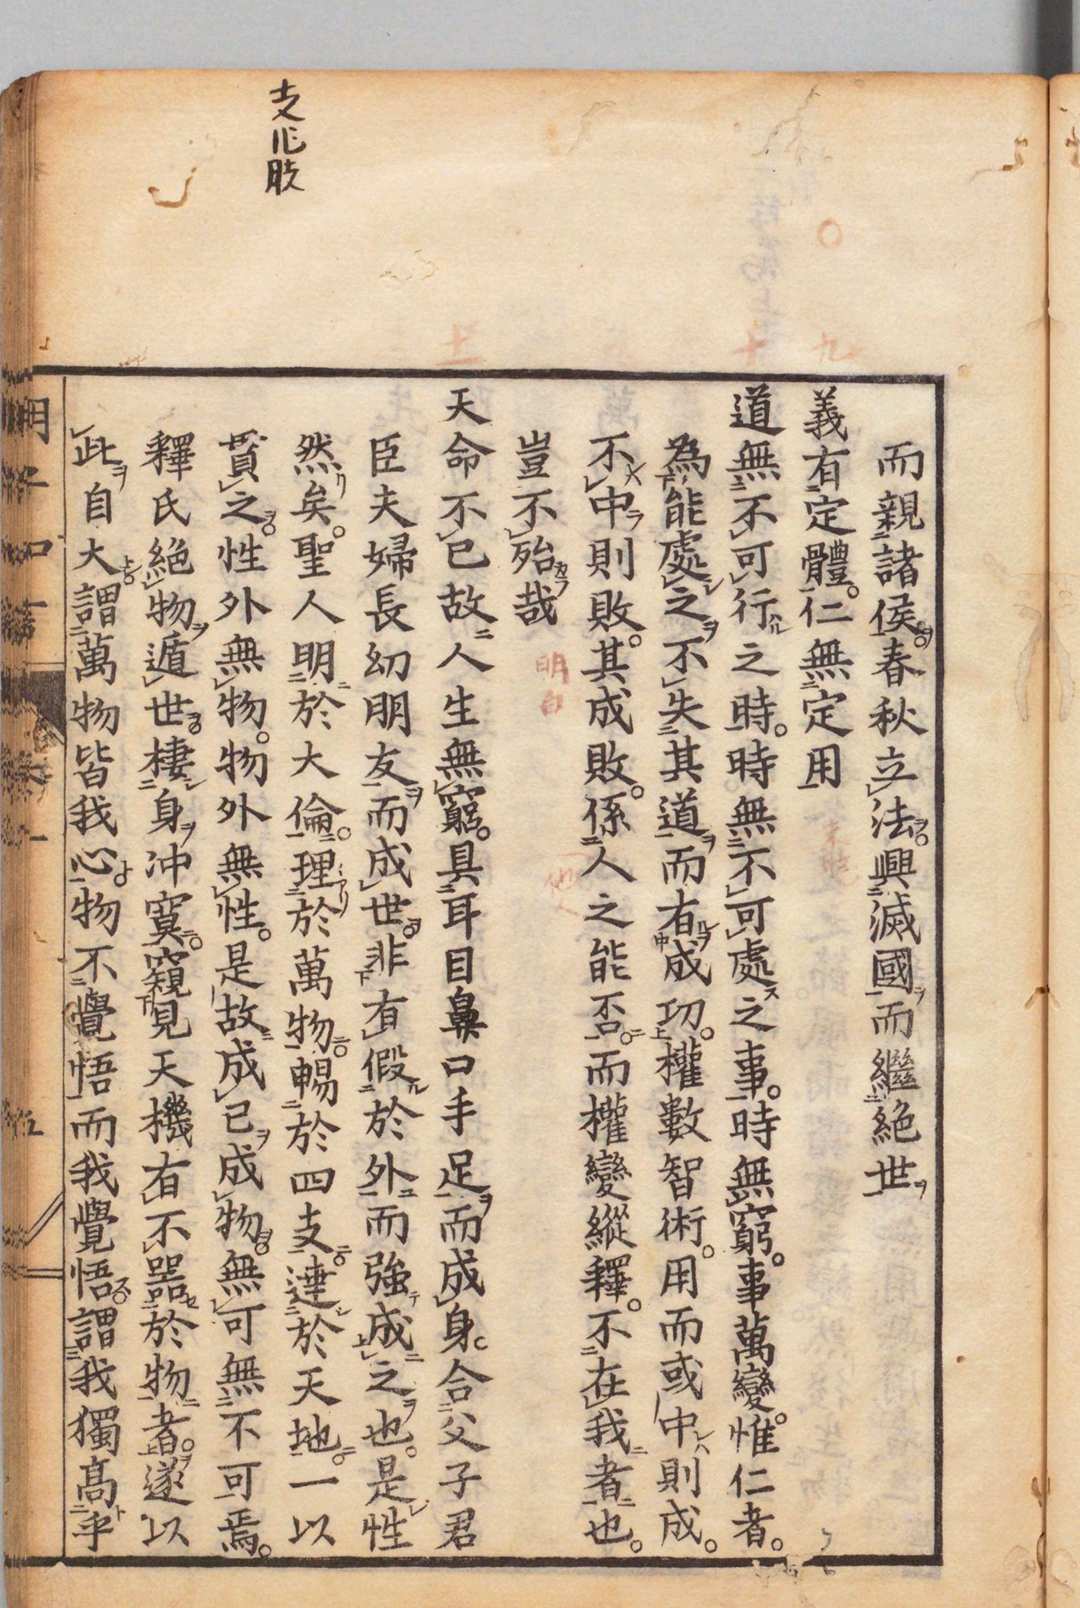 支作肢
而親諸侯春秋立法興滅國而繼絶世
義有定體仁無定用
道無不可行之時時無不可處之事時無窮事萬變惟仁者
為能處之不失其道而有成功權數智術用而或中則成
不中則敗其成敗係人之能否而權變縱釋不在我者也
豈不殆哉
天命不已故人生無窮具耳目鼻口手足而成身合父子君
臣夫婦長幼朋友而成世非有假於外而強成之也是性
然矣聖人明於大倫理於萬物暢於四支達於天地一以
貫之性外無物物外無性是故成已成物無可無不可焉
釋氏絶物遁世棲身沖寞窺見天機有不器於物者遂以
此自大謂萬物皆我心物不覺悟而我覺悟謂我獨髙乎